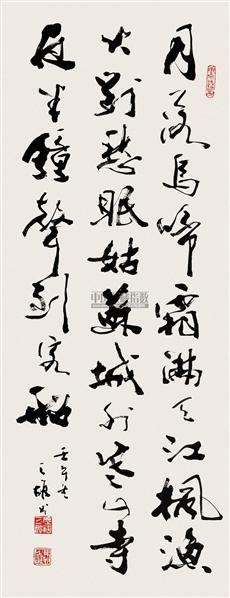 月落烏啼霜滿天江楓漁
火對愁眠姑蘇城外寒山寺
夜半鐘聲到客船
壬午
雄书